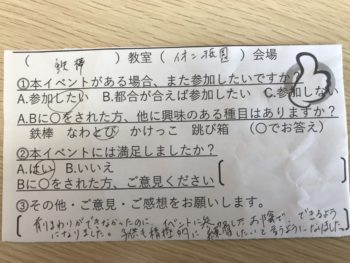 ( 鉄棒 ) 教室 ( イオン祇園 ) 会場
①本イベントがある場合、また参加したいですか?
A.参加したい B.都合が合えば参加したい C.参加しない
A.Bに〇をされた方、他に興味のある種目はありますか?
鉄棒 なわとび かけっこ 跳び箱 (〇でお答え)
②本イベントには満足しましたか?
A.はい B.いいえ
Bに〇をされた方、ご意見ください
③その他・ご意見・ご感想をお願いします。
前まわりができなかったのに、イベントに参加したお陰で、できるよう
になりました。子供も積極的に練習したいと言うようになりました